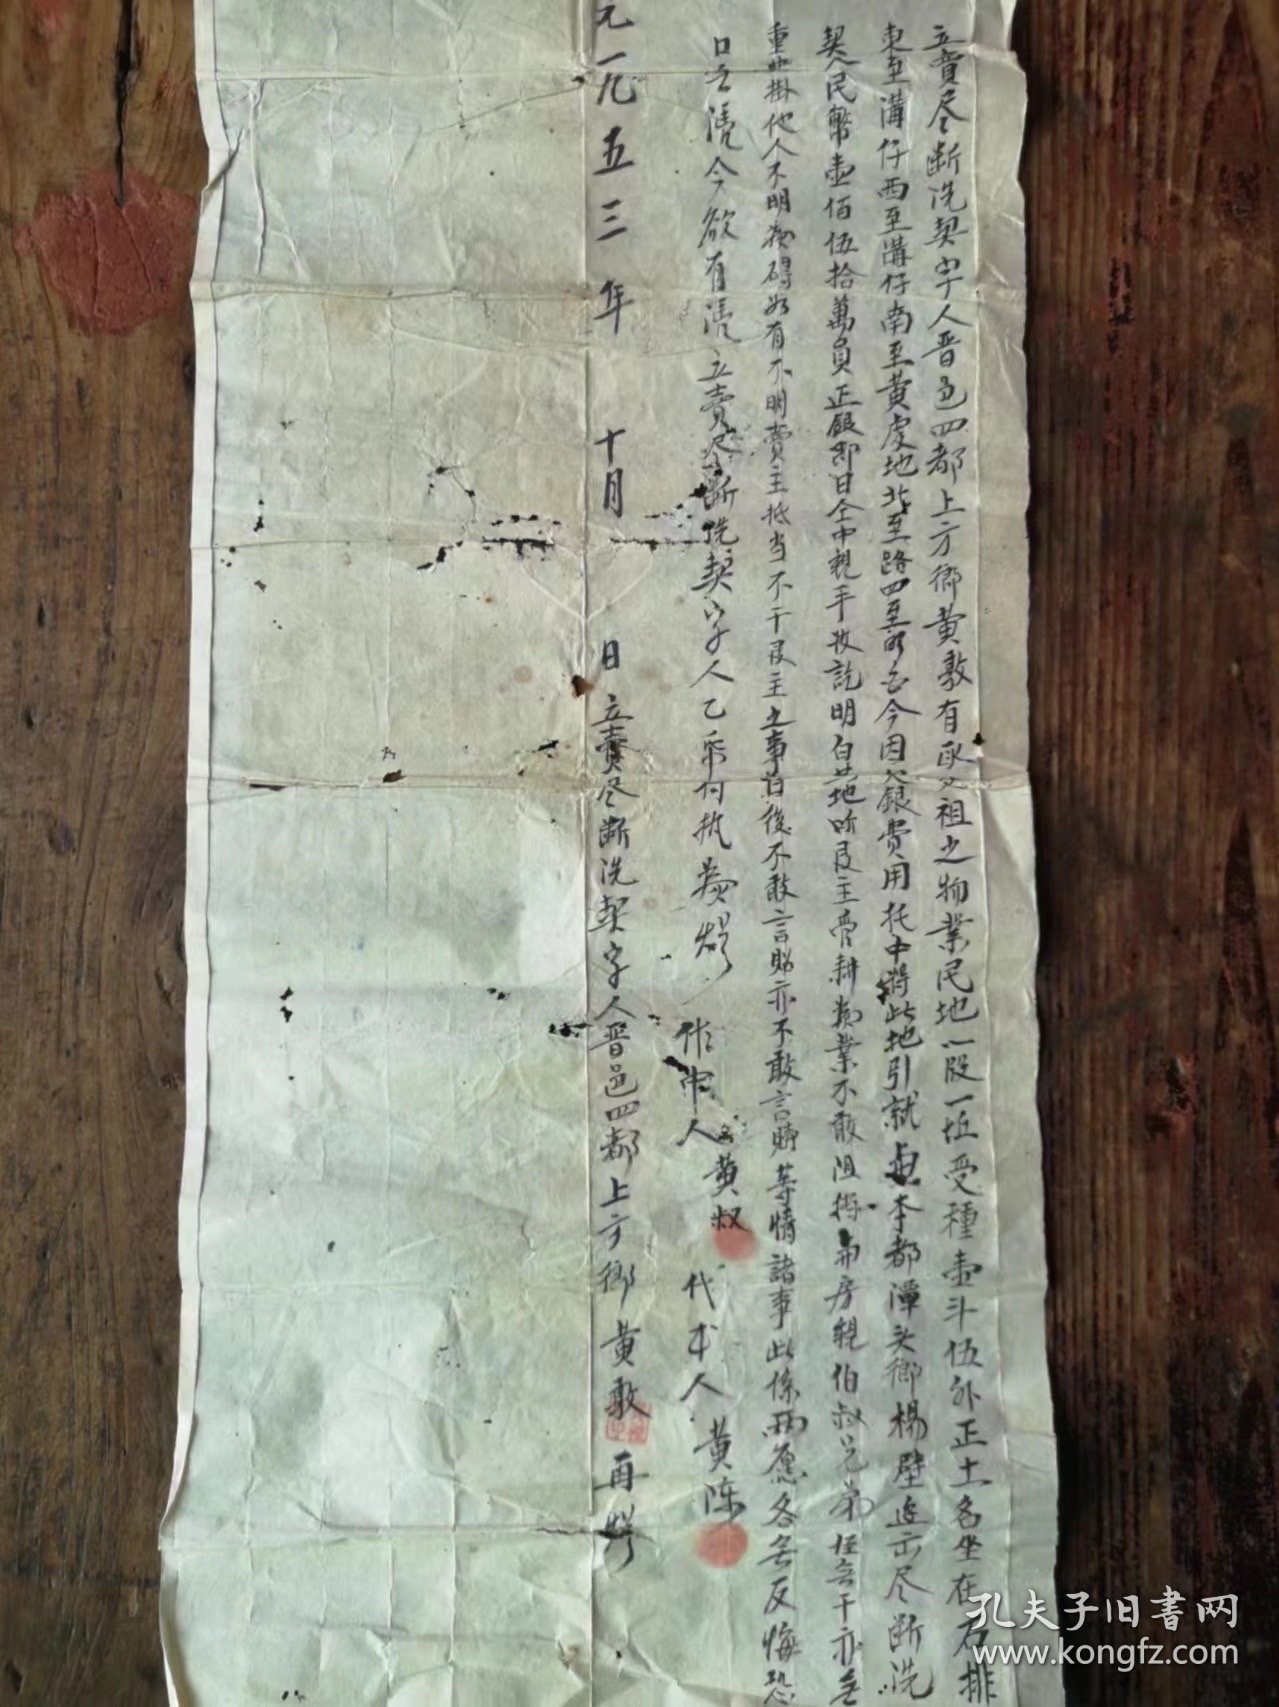 立賣尽断洗契字人晋邑四都上方鄉黄敦有承父祖之物業民地一段一坵受種壹斗伍升正土名坐在石排
東至溝仔西至溝仔南至黄虔地北至路四至明白今因欠銀費用托中將此地引就与本都潭头鄉楊壁边示尽断洗
契人民幣壹佰伍拾萬員正銀即日仝中親手收訖明白其地听艮主管耕為業不敢阻擋而房親伯叔兄弟侄無干亦無
重典掛他人不明為碍如有不明賣主抵当不干艮主之事日後不敢言貼亦不敢言贖等情諸事此係两愿各無反悔恐
口無憑今欲有憑立賣尽断洗契字人乙帋付执為炤
作中人 黄叔
代书人 黄陈
元一九五三年 十月 日立賣尽断洗契字人晋邑四都上方鄉黄敦 再
孔夫子旧書网
www.kongfz.com